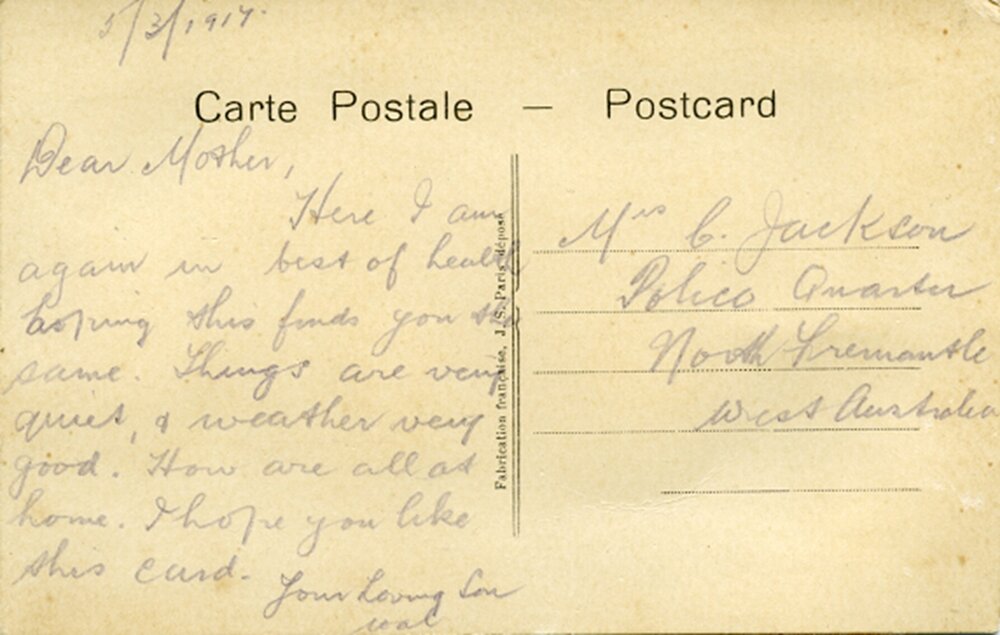 5/3/1917.
Carte Postale — Postcard
Dear Mother,
Here I am
again in best of health
hoping this finds you the
same. Things are very
quiet, & weather very
good. How are all at
home. I hope you like
this card.
Your Loving Son
Wal
Fabrication française, J. S. Paris déposé
Mrs C. Jackson
Police Quarter
North Fremantle
West Australia